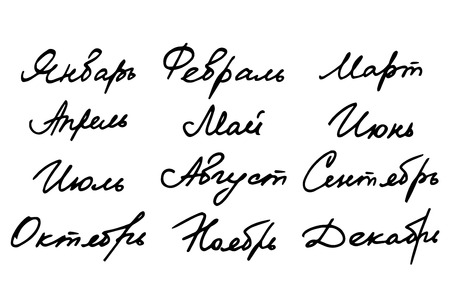 Январь Февраль Март
Апрель Май Июнь
Июль Август Сентябрь
Октябрь Ноябрь Декабрь